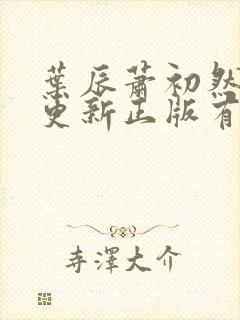 葉辰蕭初然
更新正版有
寺澤大介